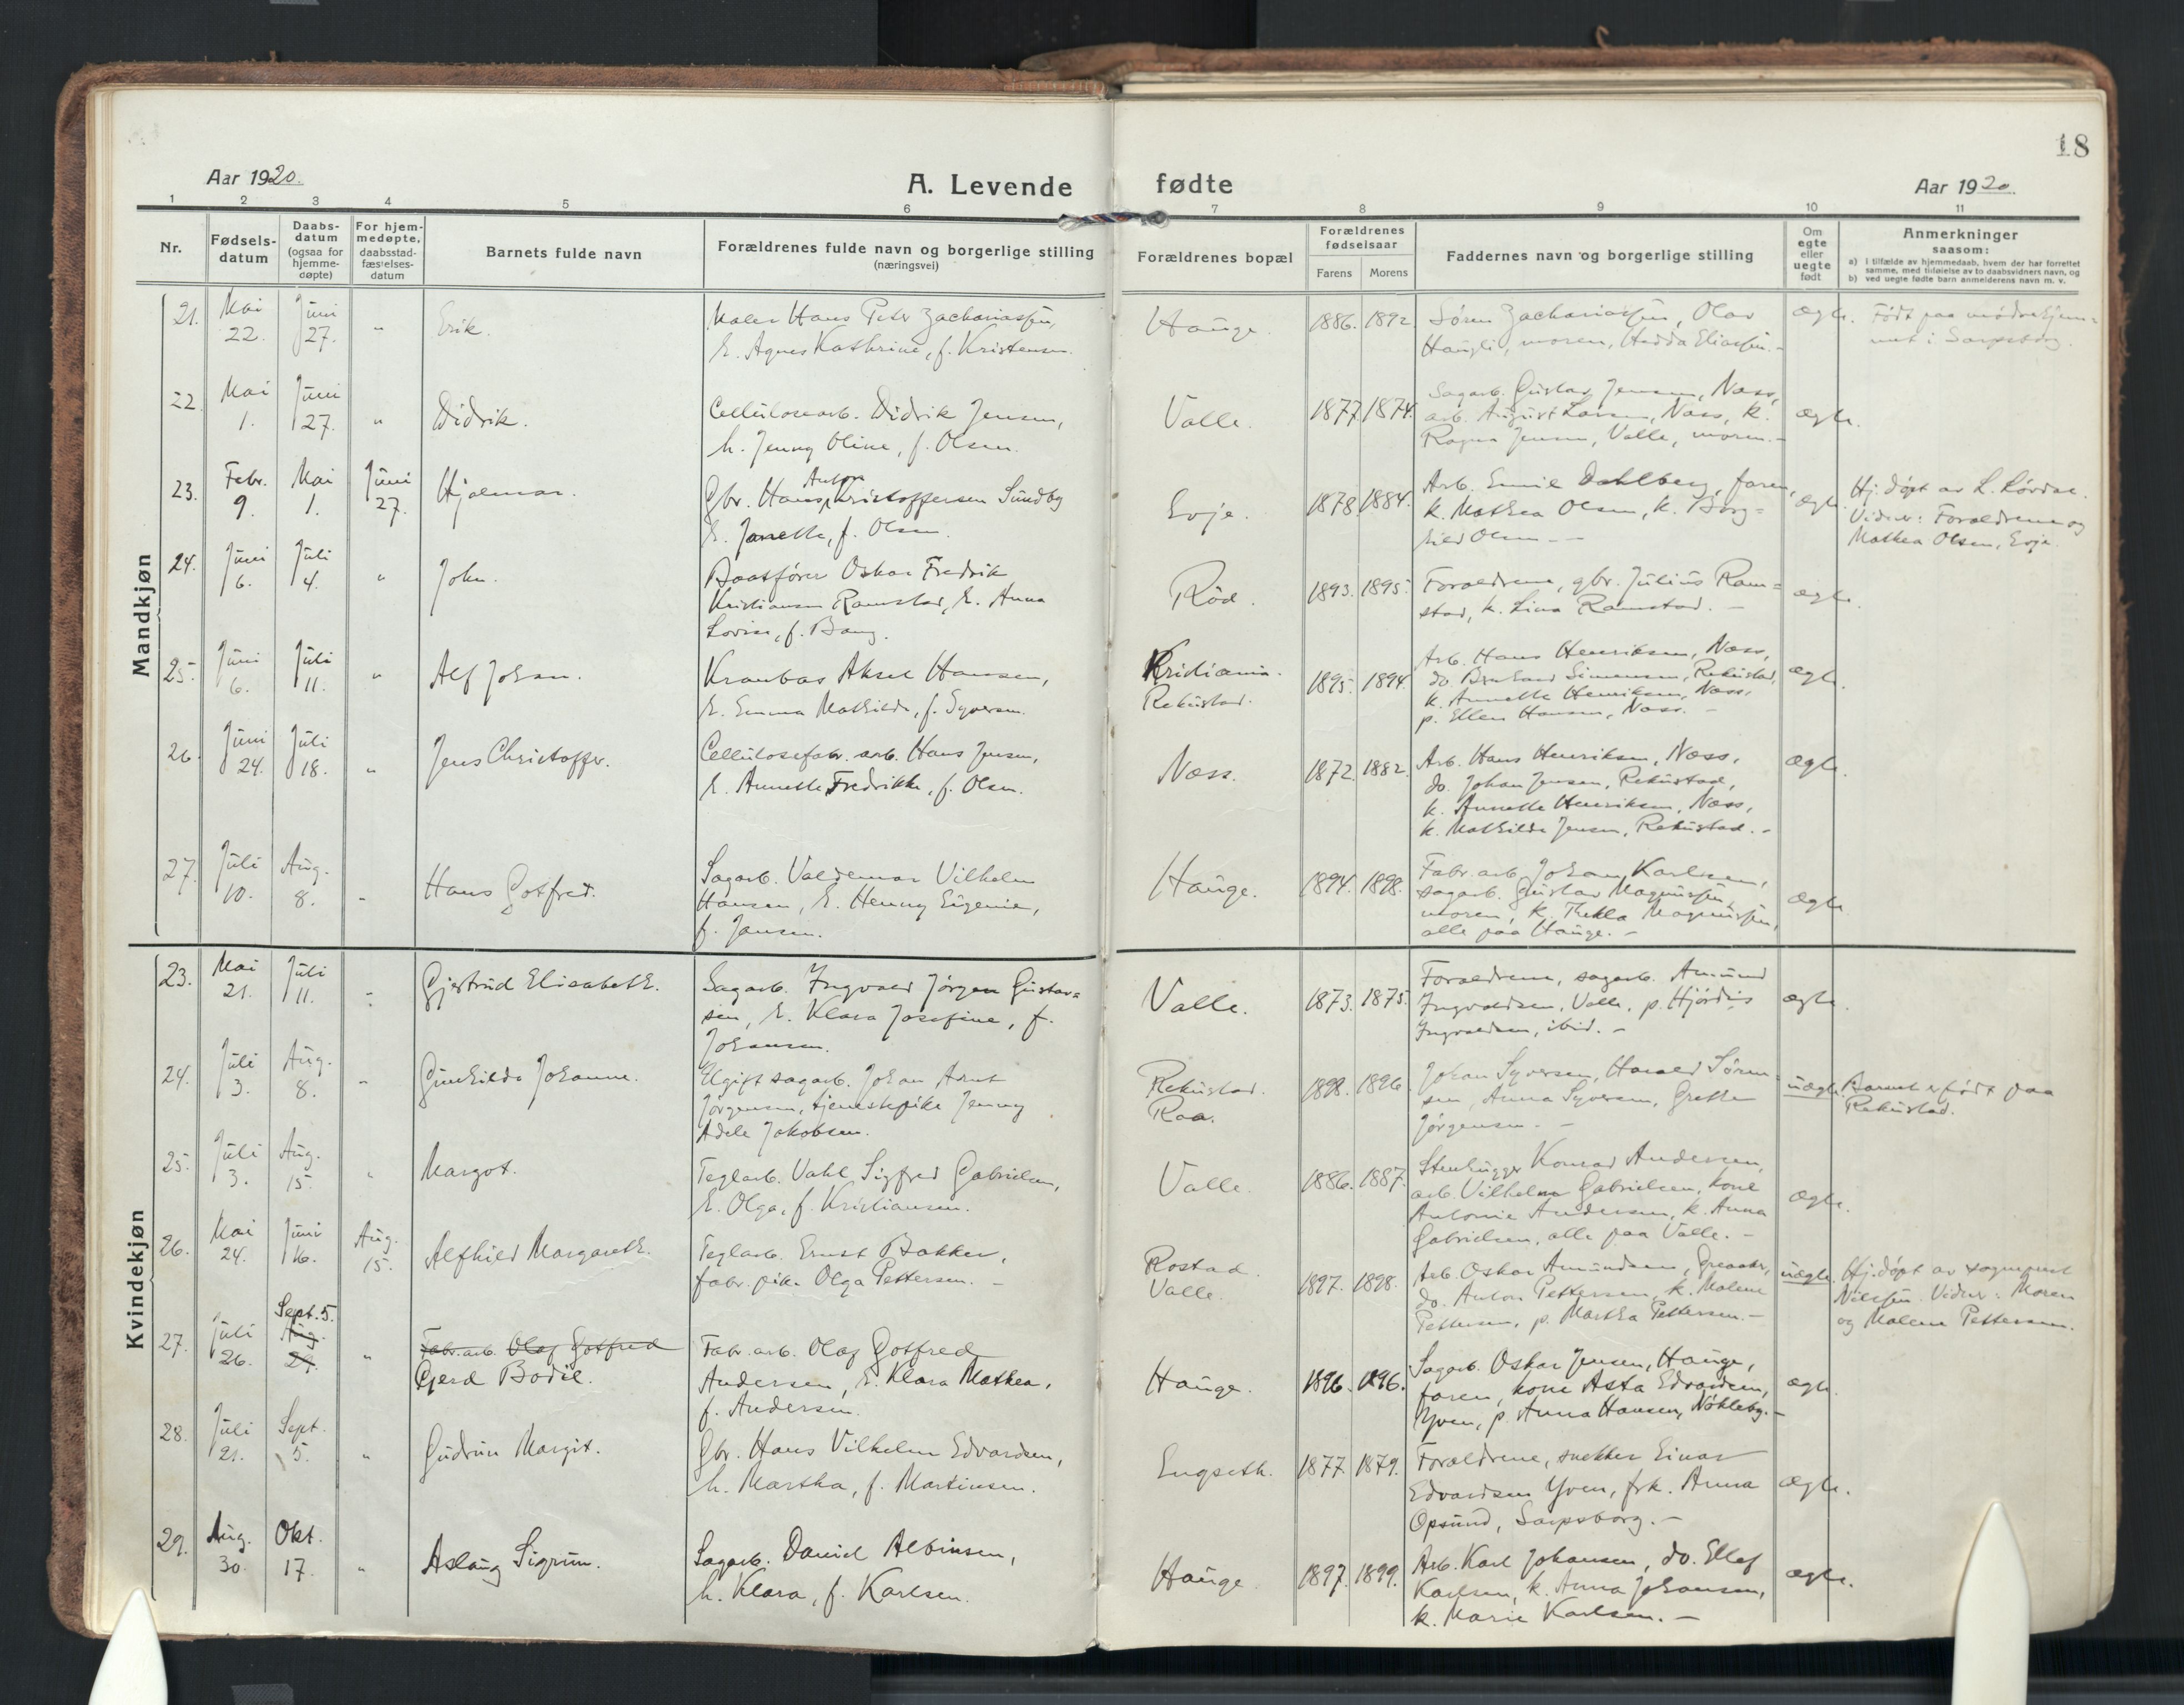 18
Aar 1920.
A. Levende fødte
Aar 1920.
1 2 3 4 5 6 7 8 9 10 11
Nr.
Fødsels-
datum
Daabs-
datum
(ogsaa for
hjemme-
døpte)
For hjem-
medøpte,
daabsstad-
fæstelses-
datum
Barnets fulde navn
Forældrenes fulde navn og borgerlige stilling
(næringsvei)
Forældrenes bopæl
Forældrenes
fødselsaar
Farens
Morens
Faddernes navn og borgerlige stilling
Om
egte
eller
uegte
født
Anmerkninger
saasom:
a) i tilfælde av hjemmedaab, hvem der har forrettet
samme, med tilføielse av to daabsvidners navn, og
b) ved uegte fødte barn anmelderens navn m. v.
Mandkjøn
21. Mai 22. Juni 27. " Erik.
Maler Hans Peter Zachariassen,
h. Agnes Kathrine, f. Kristensen.
Hauge. 1886. 1892.
Søren Zachariassen, Olav
Haugli, moren, Hedda Eliassen.-
ægte.
Født paa mødrehjem=
met i Sarpsborg.
22. Mai 1. Juni 27. " Didrik.
Cellulosearb. Didrik Jensen,
h. Jenny Oline, f. Olsen.
Valle. 1877. 1874.
Sagarb. Gustav Jensen, Næss,
arb. August Larsen, Næss, k.
Ragna Jensen, Valle, moren.-
ægte.
23. Febr. 9. Mai 1. Juni 27. Hjalmar.
Anton
Gbr. Hans Kristoffersen Sundby
h. Janette, f. Olsen.
Evje. 1878. 1884.
Arb. Emil Dahlberg, faren,
k. Mathea Olsen, k. Borg=
hild Olsen - -
ægte.
Hj. døpt av L. Løvdal.
Vidner: Forældrene og
Mathea Olsen, Evje.
24. Juni 6. Juli 4. " John.
Baatfører Oskar Fredrik
Kristiansen Ramstad, h. Anna
Lovise, f. Bang.
Rød. 1893. 1895.
Forældrene, gbr. Julius Ram=
stad, k. Lina Ramstad. -
ægte.
25. Juni 6. Juli 11. " Alf Johan.
Kranbas Aksel Hansen,
h. Emma Mathilde, f. Syversen.
Kristiania.
Rekustad.
1895. 1894.
Arb. Hans Henriksen, Næss,
do. Bernhard Simensen, Rekustad,
k. Annette Henriksen, Næss,
p. Ellen Hansen, Næss. -
ægte.
26. Juni 24. Juli 18. " Jens Christoffer.
Cellulosefabr. arb. Hans Jensen,
h. Annette Fredrikke, f. Olsen.
Næss. 1872. 1882.
Arb. Hans Henriksen, Næss,
do. Johan Jensen, Rekustad,
k. Annette Henriksen, Næss,
k. Mathilde Jensen, Rekustad. -
ægte.
27. Juli 10. Aug. 8. " Hans Gotfred.
Sagarb. Valdemar Vilhelm
Hansen, h. Henny Eugenie,
f. Jansen.
Hauge. 1894. 1898.
Fabr. arb. Johan Karlsen,
sagarb. Gustav Magnussen,
moren, k. Thekla Magnussen,
alle paa Hauge. -
ægte.
Kvindekjøn
23. Mai 21. Juli 11. " Gjertrud Elisabeth.
Sagarb. Ingvald Jørgen Gustav=
sen, h. Klara Josefine, f.
Johansen.
Valle. 1873. 1875.
Forældrene, sagarb. Amund
Ingvaldsen, Valle, p. Hjørdis
Ingvaldsen, ibid. -
ægte.
24. Juli 3. Aug. 8. " Gunhilda Johanne.
Ugift sagarb. Johan Arnt
Jørgensen, tjenestepike Jenny
Adele Jakobsen.
Rekustad.
Raa.
1898. 1896.
Johan Syversen, Harald Søren=
sen, Anna Syversen, Grethe
Jørgensen. -
uægte.
Barnet er født paa
Rekustad.
25. Juli 3. Aug. 15. " Margot.
Teglarb. Vahl Sigfred Gabrielsen,
h. Olga, f. Kristiansen.
Valle. 1886. 1887.
Stenhugger Konrad Andersen,
arb. Vilhelm Gabrielsen, kone
Antonie Andersen, k. Anna
Gabrielsen, alle paa Valle. -
ægte.
26. Mai 24. Juni 16. Aug. 15. Alfhild Margareth.
Teglarb. Ernst Bakker,
fabr. pike Olga Pettersen. -
Rostad.
Valle.
1897. 1898.
Arb. Oskar Amundsen, Greaaker,
do. Anton Pettersen, k. Malene
Pettersen, p. Martha Pettersen. -
uægte.
Hj. døpt av sogneprest
Nilssen. Vidner: Moren
og Malene Pettersen.
27. Juli 26. Sept. 5. Aug. 29. " Fabr. arb. Olaf Gotfred
Gjerd Bodil.
Fabr. arb. Olaf Gotfred
Andersen, h. Klara Mathea,
f. Andersen.
Hauge. 1896. 1896.
Sagarb. Oskar Jensen, Hauge,
faren, kone Asta Edvardsen,
Yven, p. Anna Hansen, Nökleby. -
ægte.
28. Juli 21. Sept. 5. " Gudrun Margit.
Gbr. Hans Vilhelm Edvardsen,
h. Martha, f. Martinsen.
Engseth. 1877. 1879.
Forældrene, snekker Einar
Edvardsen Yven, frk. Anna
Opsund, Sarpsborg. -
ægte.
29. Aug. 30. Okt. 17. " Aslaug Sigrun.
Sagarb. Daniel Albinsen,
h. Klara, f. Karlsen.
Hauge 1897. 1899.
Arb. Karl Johansen, do. Ellef
Karlsen, k. Anna Johansen,
k. Marie Karlsen. -
ægte.